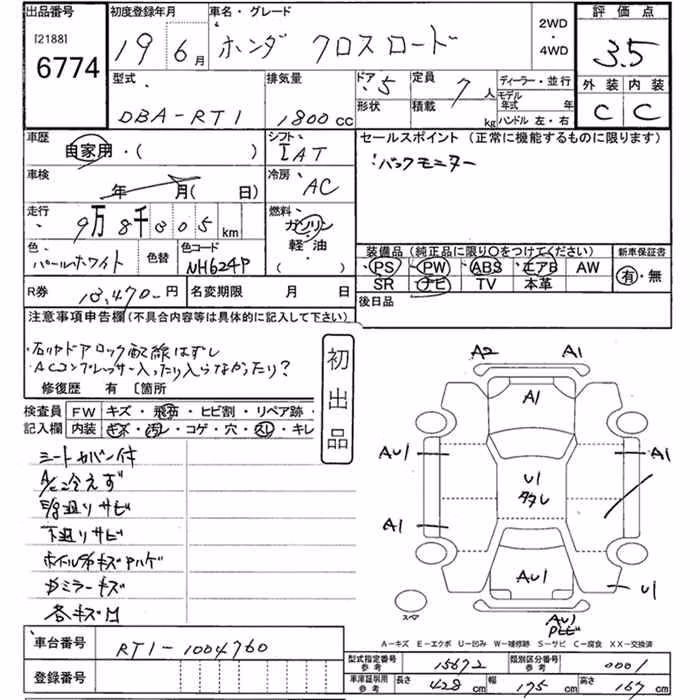 出品番号 初度登録年月 車名・グレード 2WD ・ 4WD 評価点
[2188]
6774
19 6月 ホンダ クロスロード 3.5
型式 排気量 ドア 5 定員 7人 ディーラー・並行 外装 内装
DBA-RT1 1800cc 形状 積載 kg モデル年式 年 C C
ハンドル 左・右
車歴 シフト セールスポイント (正常に機能するものに限ります)
自家用・( ) IAT バックモニター
車検 冷房
年 月( 日) AC
走行 燃料
9万8千305km ガソリン
軽・油
( )
色 色替 色コード 装備品 (純正品に限り○をつけてください) 新車保証書
パールホワイト NH624P PS PW ABS エアB AW 有・無
SR ナビ TV 本革
R券 円 名変期限 月 日 後日品
注意事項申告欄 (不具合内容等は具体的に記入して下さい)
・右リヤドアロック配線はずし
・ACコンプレッサー入ったり入らなかったり?
修復歴 有 〔箇所
初出品
検査員 FW キズ・飛石・ヒビ割・リペア跡・
記入欄 内装 キズ・汚レ・コゲ・穴・スレ・キレ
シートカバー付
A/C冷えず
下廻リサビ
ドアミラーキズ
各キズ凹
A2 A1
A1
AU1 A1
U1
タタレ
A1
AU1 U1
スペア
AU1
A-キズ E-エクボ U-凹み W-補修跡 S-サビ C-腐食 XX-交換済
車台番号 RT1-1004760
型式指定番号 参考 15672 類別区分番号 参考 0001
登録番号
車庫証明用 参考 長さ 428cm 幅 175cm 高さ 167cm